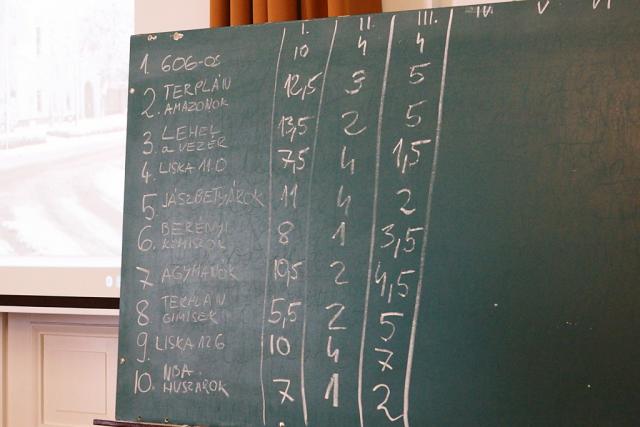 I. II. III. IV. V VI
1. 606-os 10 4 4
2. TERPLÁN AMAZONOK 12,5 3 5
3. LEHEL a VEZÉR 13,5 2 5
4. LISKA 11.D 7,5 4 1,5
5. JÁSZBETYÁROK 11 4 2
6. BERÉNYI KOMISZOK 8 1 3,5
7. AGYMANÓK 10,5 2 4,5
8. TERPLÁN GIMISEK 5,5 2 5
9. LISKA 12G 10 4 7
10. NBA HUSZÁROK 7 1 2